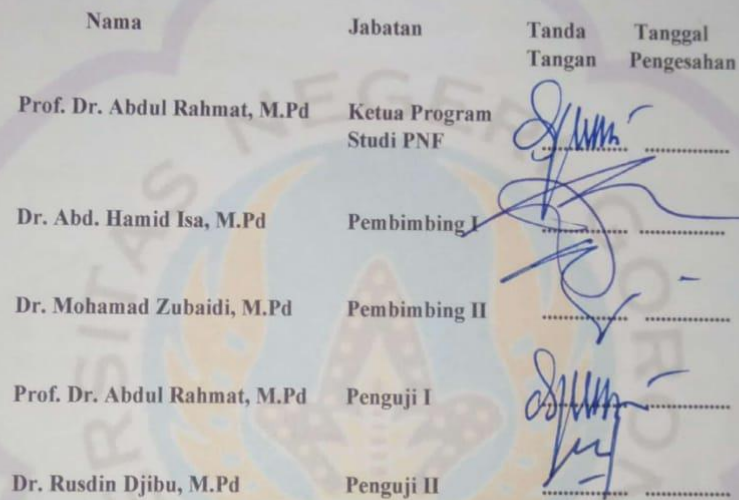 Nama Jabatan Tanda Tanggal
Tangan Pengesahan
Prof. Dr. Abdul Rahmat, M.Pd Ketua Program
Studi PNF
Dr. Abd. Hamid Isa, M.Pd Pembimbing I
Dr. Mohamad Zubaidi, M.Pd Pembimbing II
Prof. Dr. Abdul Rahmat, M.Pd Penguji I
Dr. Rusdin Djibu, M.Pd Penguji II